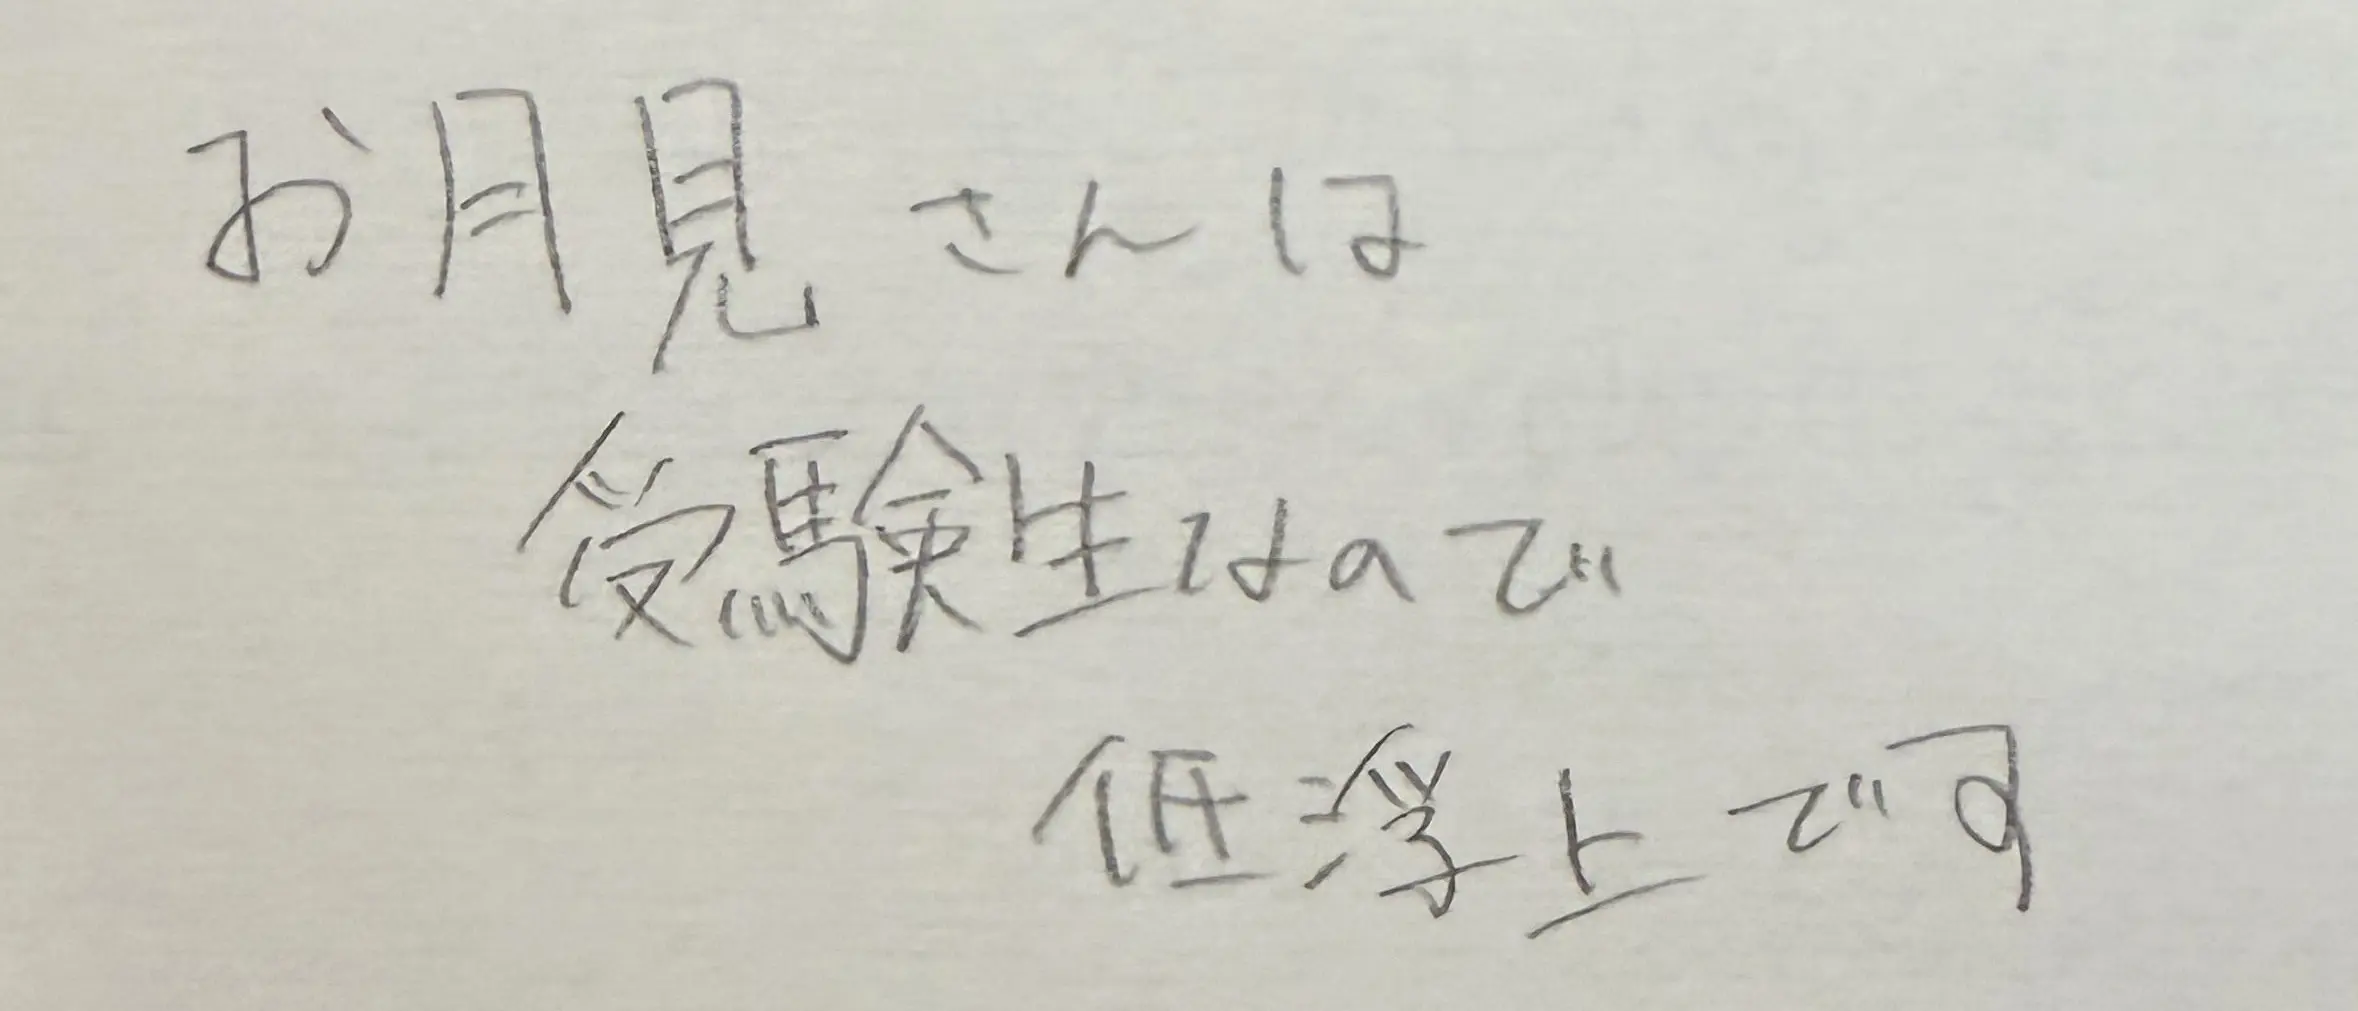 お月見さんは
受験生なので
低浮上です